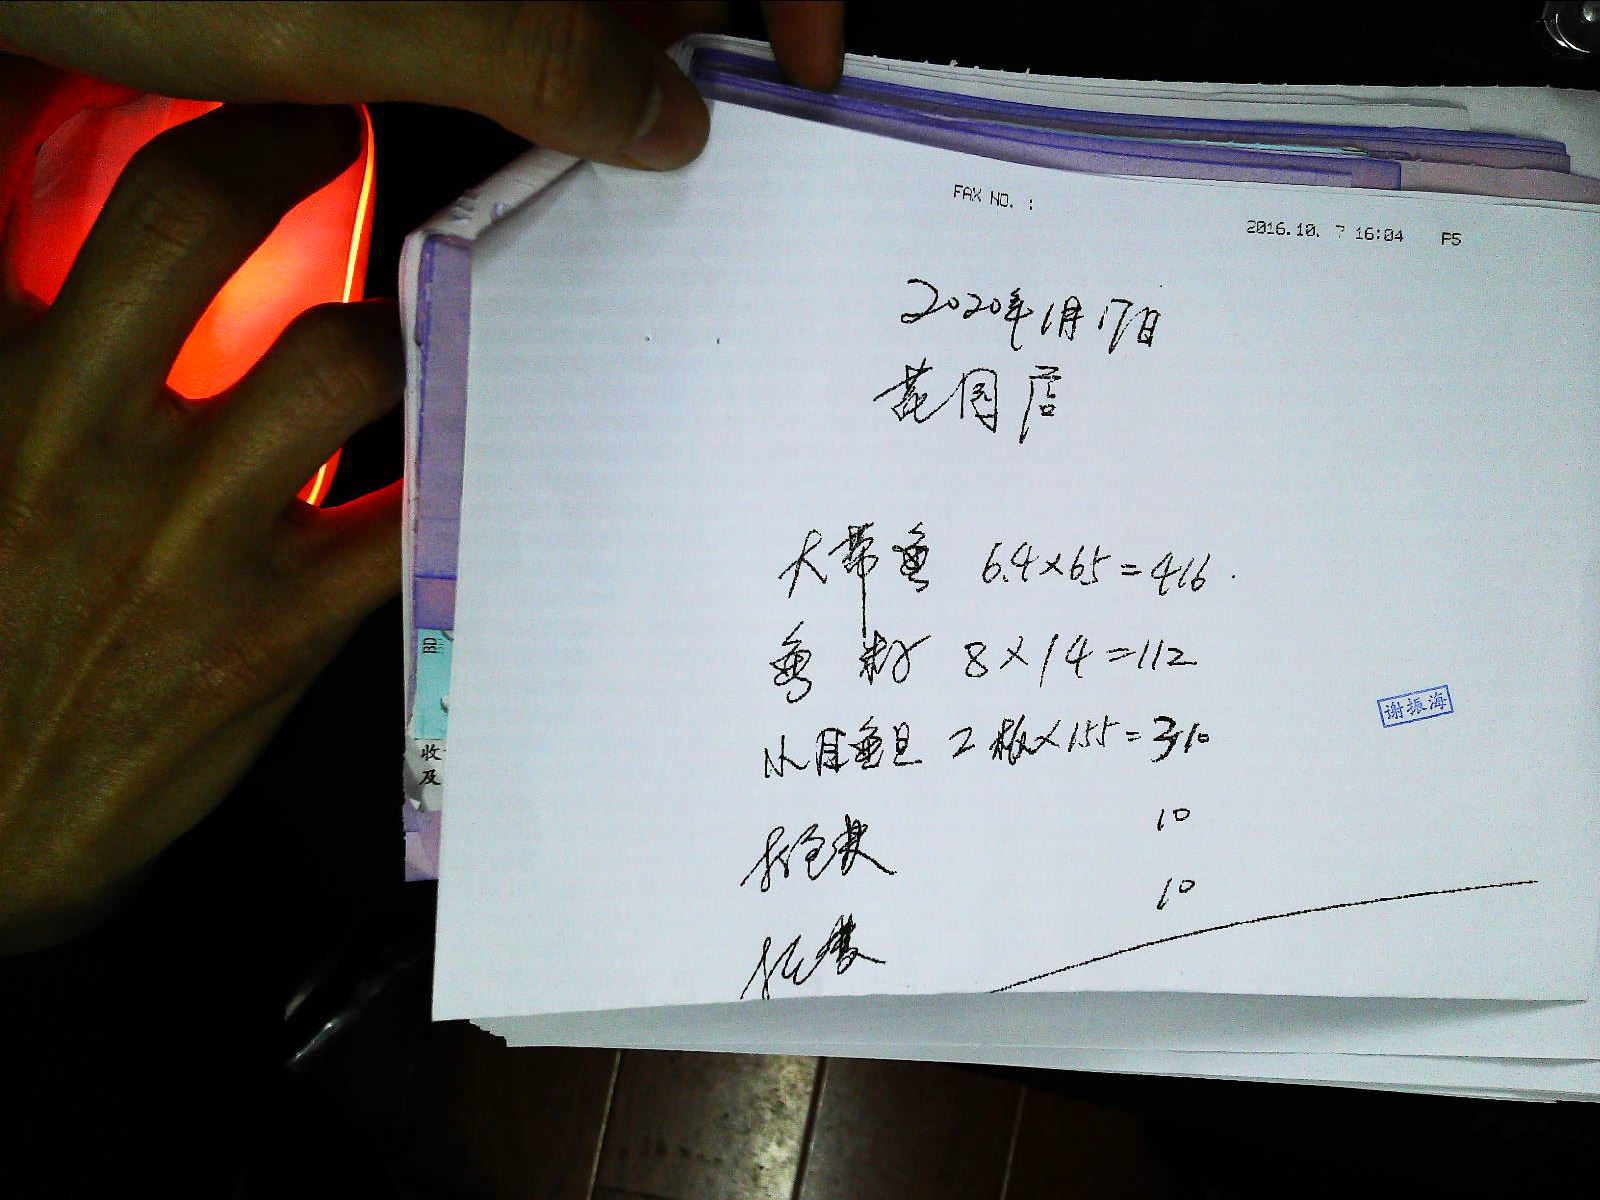 FAX NO. :
2016.10. 7 16:04 P5
2020年1月17日
花园店
大带鱼 6.4×65=416
鱼籽 8×14=112
小目鱼旦 2板×155=310
10
10
谢振海
BD
收
及